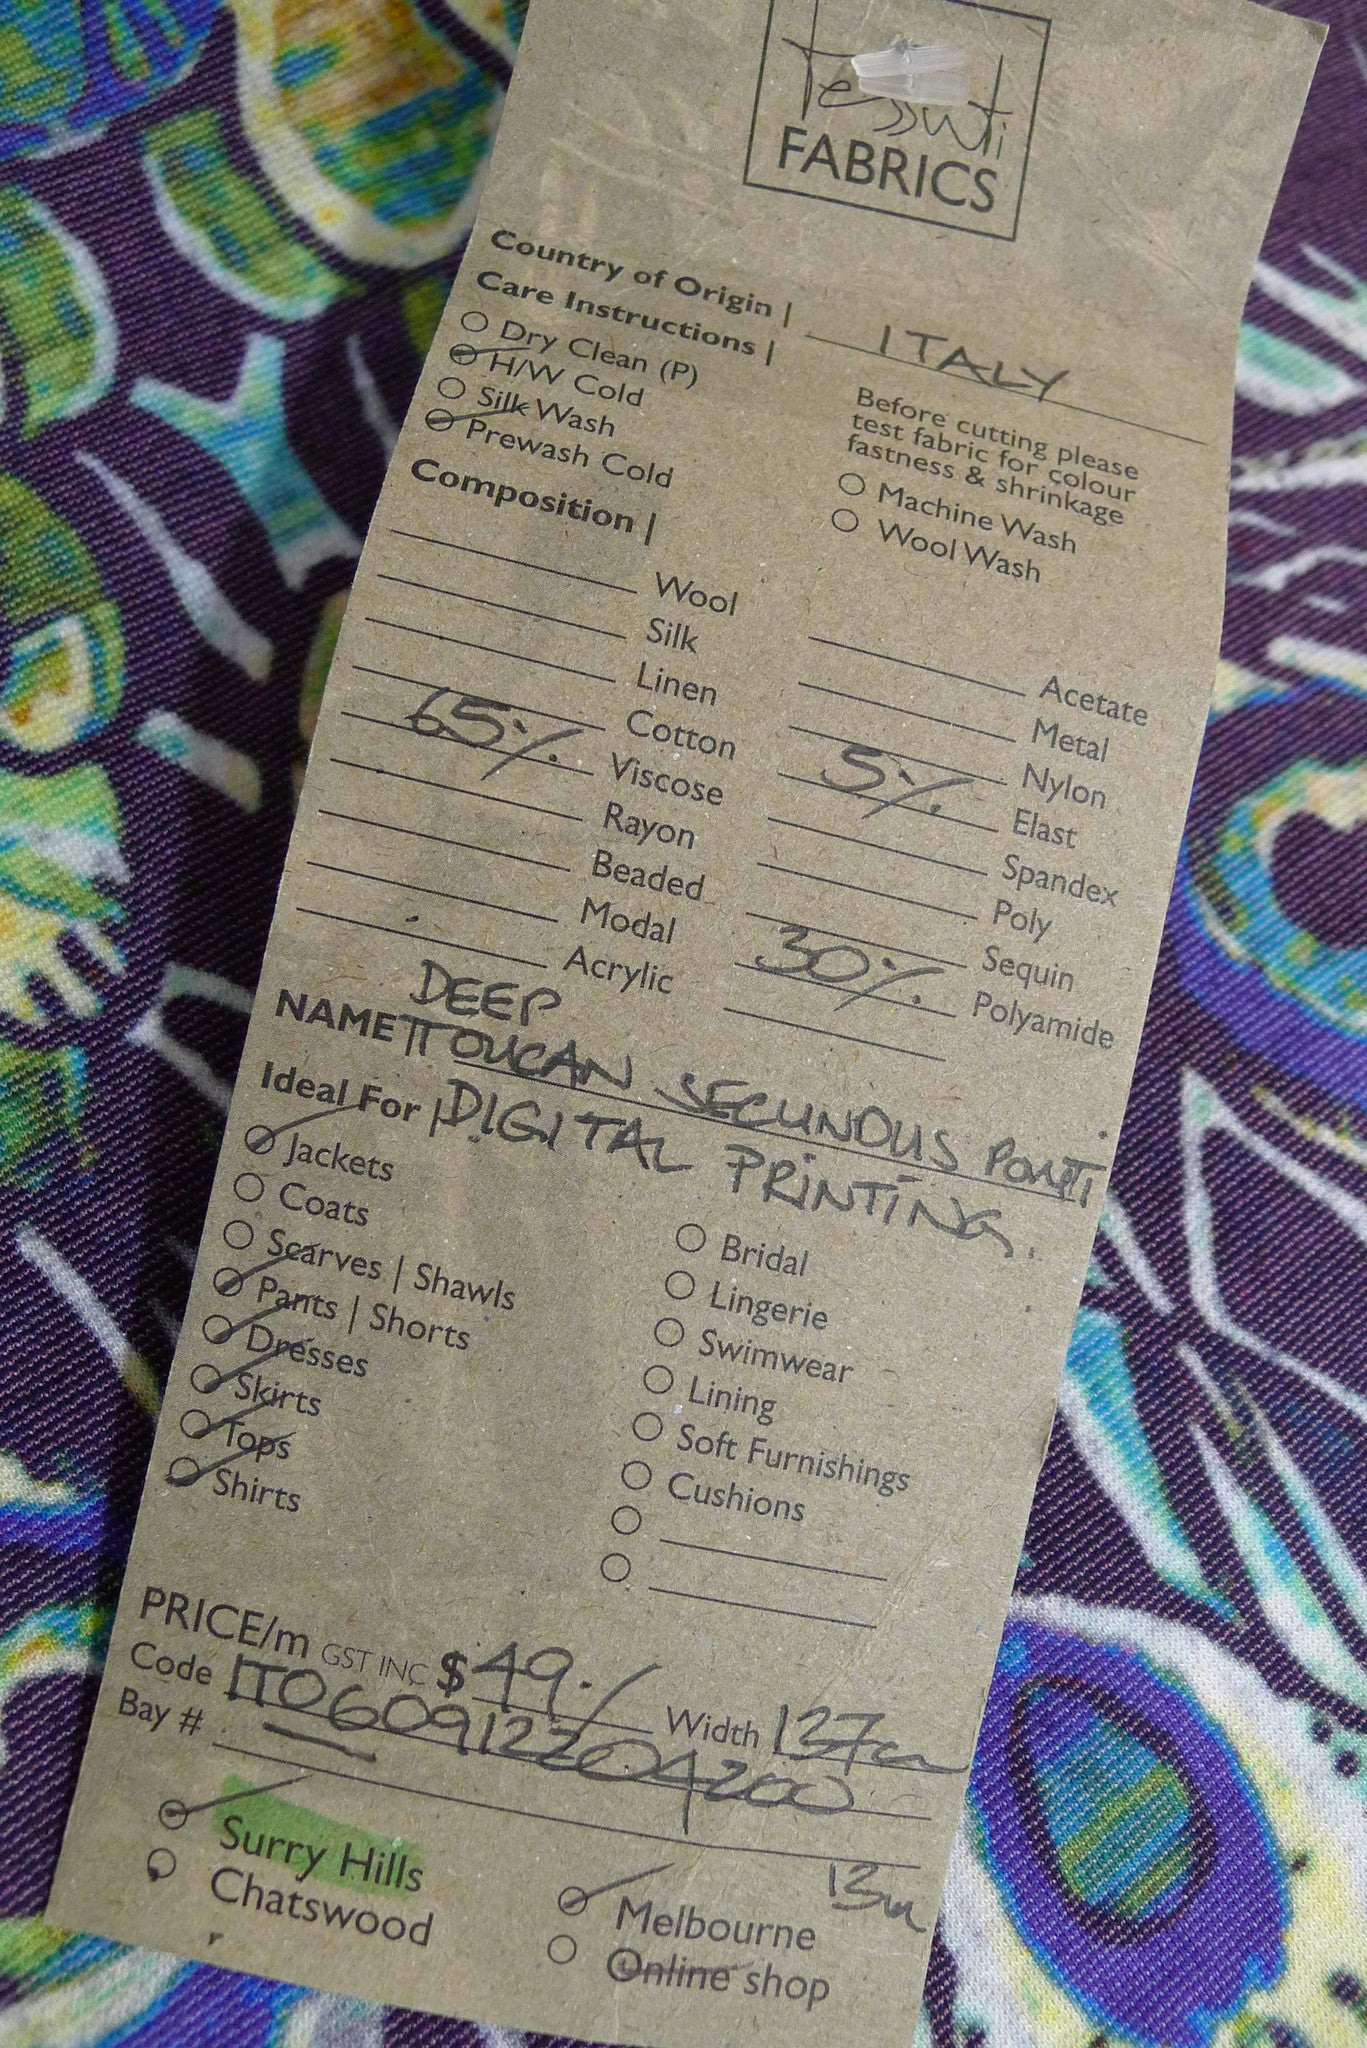 Tessuti
FABRICS
Country of Origin | ITALY
Care Instructions |
Dry Clean (P)
H/W Cold
Silk Wash
Prewash Cold
Before cutting please
test fabric for colour
fastness & shrinkage
Machine Wash
Wool Wash
Composition |
Wool
Silk
Linen
Cotton
65% Viscose
Rayon
Beaded
Modal
Acrylic
Acetate
Metal
Nylon
5% Elast
Spandex
Poly
Sequin
30% Polyamide
DEEP
NAME | TOUCAN SECUNOUS PONTI
Ideal For | DIGITAL PRINTING.
Jackets
Coats
Scarves | Shawls
Pants | Shorts
Dresses
Skirts
Tops
Shirts
Bridal
Lingerie
Swimwear
Lining
Soft Furnishings
Cushions
PRICE/m GST INC $49./ Width 137cm
Code ITO60912204200
Bay #
13m
Surry Hills
Chatswood
Melbourne
Online shop